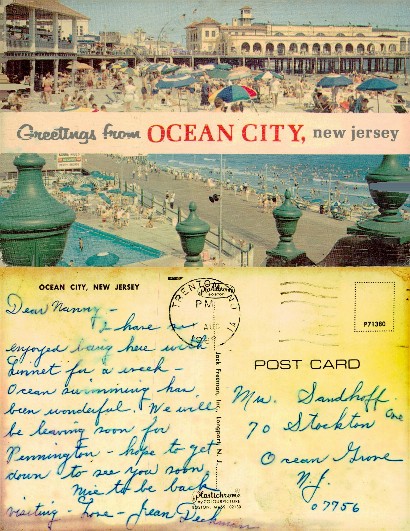 Greetings from OCEAN CITY, new jersey
OCEAN CITY, NEW JERSEY
Dear Nanny -
I have so
enjoyed being here with
Linnet for a week -
Ocean swimming has
been wonderful. We will
be leaving soon for
Pennington - hope to get
down to see you soon
Nice to be back
visiting - Love - Jean
TRENTON, N.J.
PM
AUG
Plastichrome
Jack Freeman, Inc., Longport, N. J.
Plastichrome
BY COLOURPICTURE
BOSTON, MASS. 02130
P71380
POST CARD
Mrs. Sandhoff
70 Stockton Ave
Ocean Grove
N.J.
07756